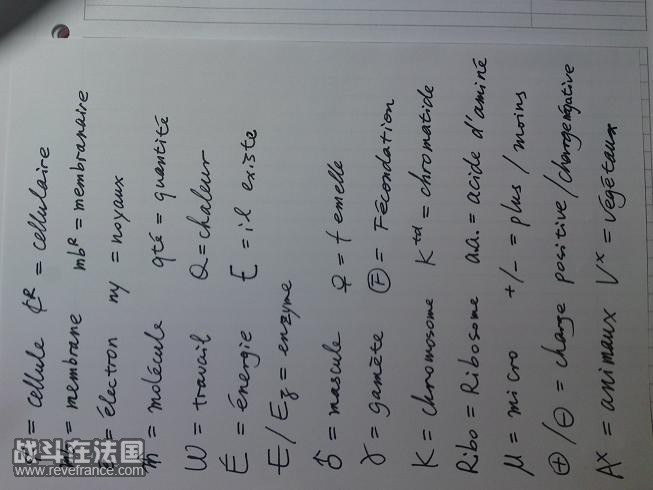 ¢ = cellule ¢ᴿ = cellulaire
mb = membrane mbᴿ = membranaire
é = électron ny = noyaux
m̄ = molécule qté = quantité
W = travail Q = chaleur
É = énergie Ɛ = il existe
E / Ez = enzyme
♂ = mascule ♀ = femelle
γ = gamète Ⓕ = Fécondation
K = chromosome Kᵗᵈ = chromatide
Ribo = Ribosome a.a. = acide d'aminé
μ = micro +/- = plus / moins
⊕ / ⊖ = charge positive / charge négative
Aˣ = animaux Vˣ = végétaux
战斗在法国
www.revefrance.com